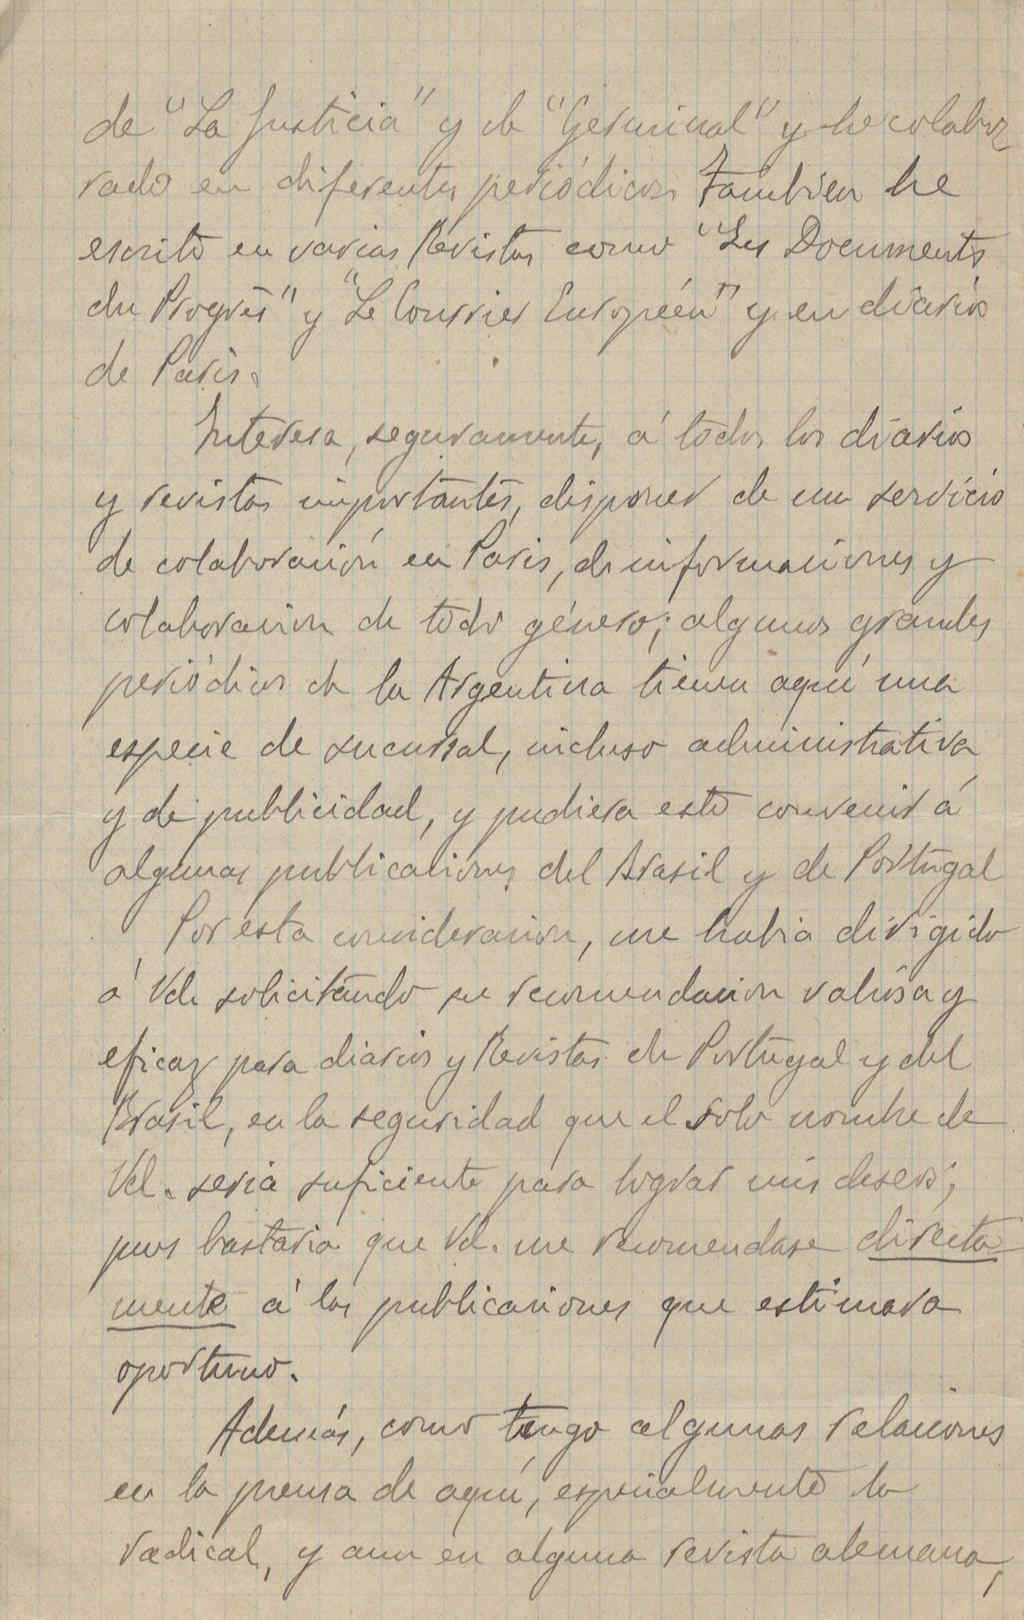 de "La Justicia" y de "Germinal" y he colabo
rado en diferentes periódicos tambien he
escrito en varias Revistas como "Les Documents
du Progrés" y "Le Courrier Européén" y en diarios
de Paris.
Interesa, seguramente, á todos los diarios
y revistas importantes, disponer de un servicio
de colaboración en Paris, de informaciones y
colaboracion de todo género; algunos grandes
periódicos de la Argentina tienen aquí una
especie de sucursal, incluso administrativa
y de publicidad, y pudiera esto convenir á
algunas publicaciones del Brasil y de Portugal
Por esta consideracion, me habia dirigido
á Vd. solicitando su recomendacion valiosa y
eficaz para diarios y Revistas de Portugal y del
Brasil, en la seguridad que el solo nombre de
Vd. seria suficiente para lograr mis deseos;
pues bastaria que Vd. me recomendase directa
mente á las publicaciones que estimara
oportuno.
Además, como tengo algunas relaciones
en la prensa de aquí, especialmente la
radical, y aun en alguna revista alemana,